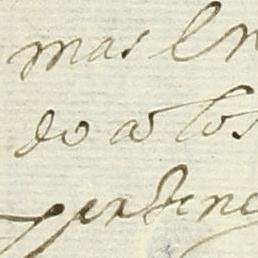 mas En
do a los
pertene